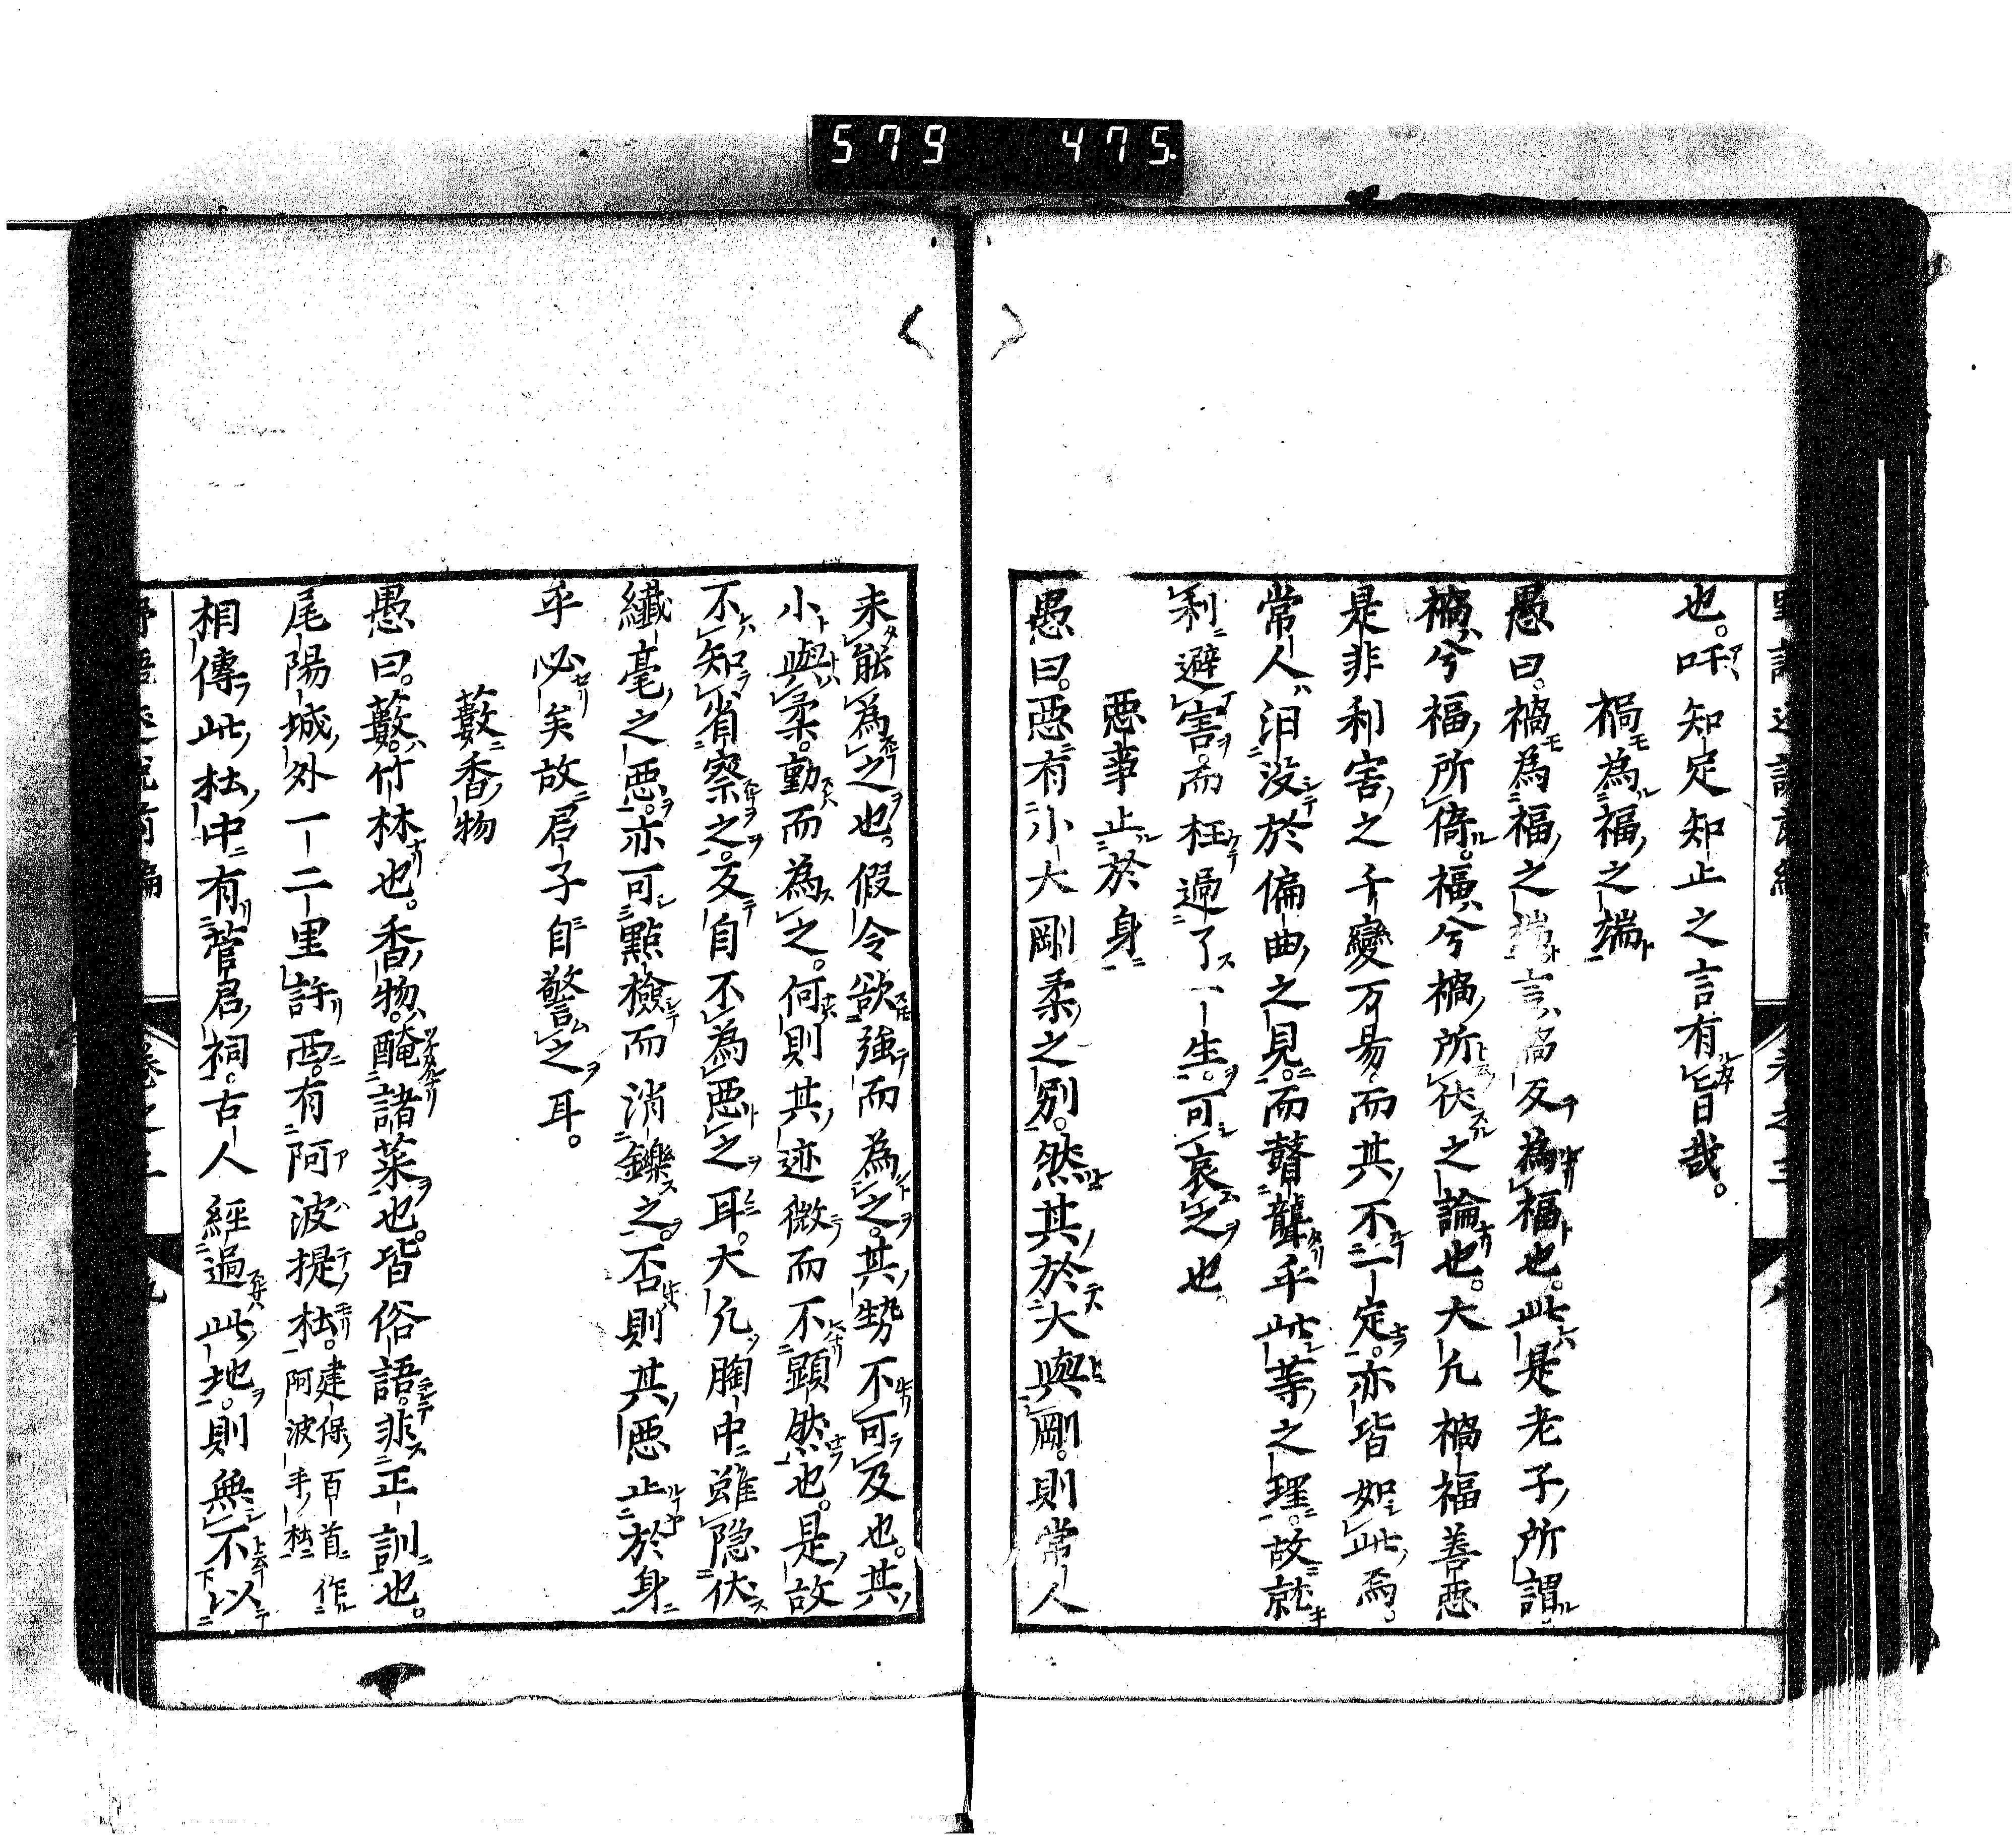 579 475
也。吁知定知止之言有旨哉。
禍為福之端
愚曰。禍為福之端言禍反為福也。此是老子所謂
禍兮福所倚。福兮禍所伏之論也。大凡禍福善惡
是非利害之千變万易而其不一定。亦皆如此焉。
常人汨没於偏曲之見。而瞽聾乎此等之理。故就
利避害而枉過了一生。可哀之也
惡事止於身
愚曰。惡有小大剛柔之別。然其於大與剛。則常人
未能為之也。假令欲強而為之。其勢不可及也。其
小與柔。動而為之。何則其迹微而不顕然也。是故
不知省察之。反自不為惡之耳。大凡胸中雖隠伏
纎毫之惡。亦可點檢而消鑠之。否則其惡止於身
乎必矣故君子自警之耳。
藪香物
愚曰。藪竹林也。香物。醃諸菜也。皆俗語。非正訓也。
尾陽城外一二里許西。有阿波提杜。建保百首作阿波手杜
相傳此杜中有菅君祠。古人經過此地。則無不以
卷之三